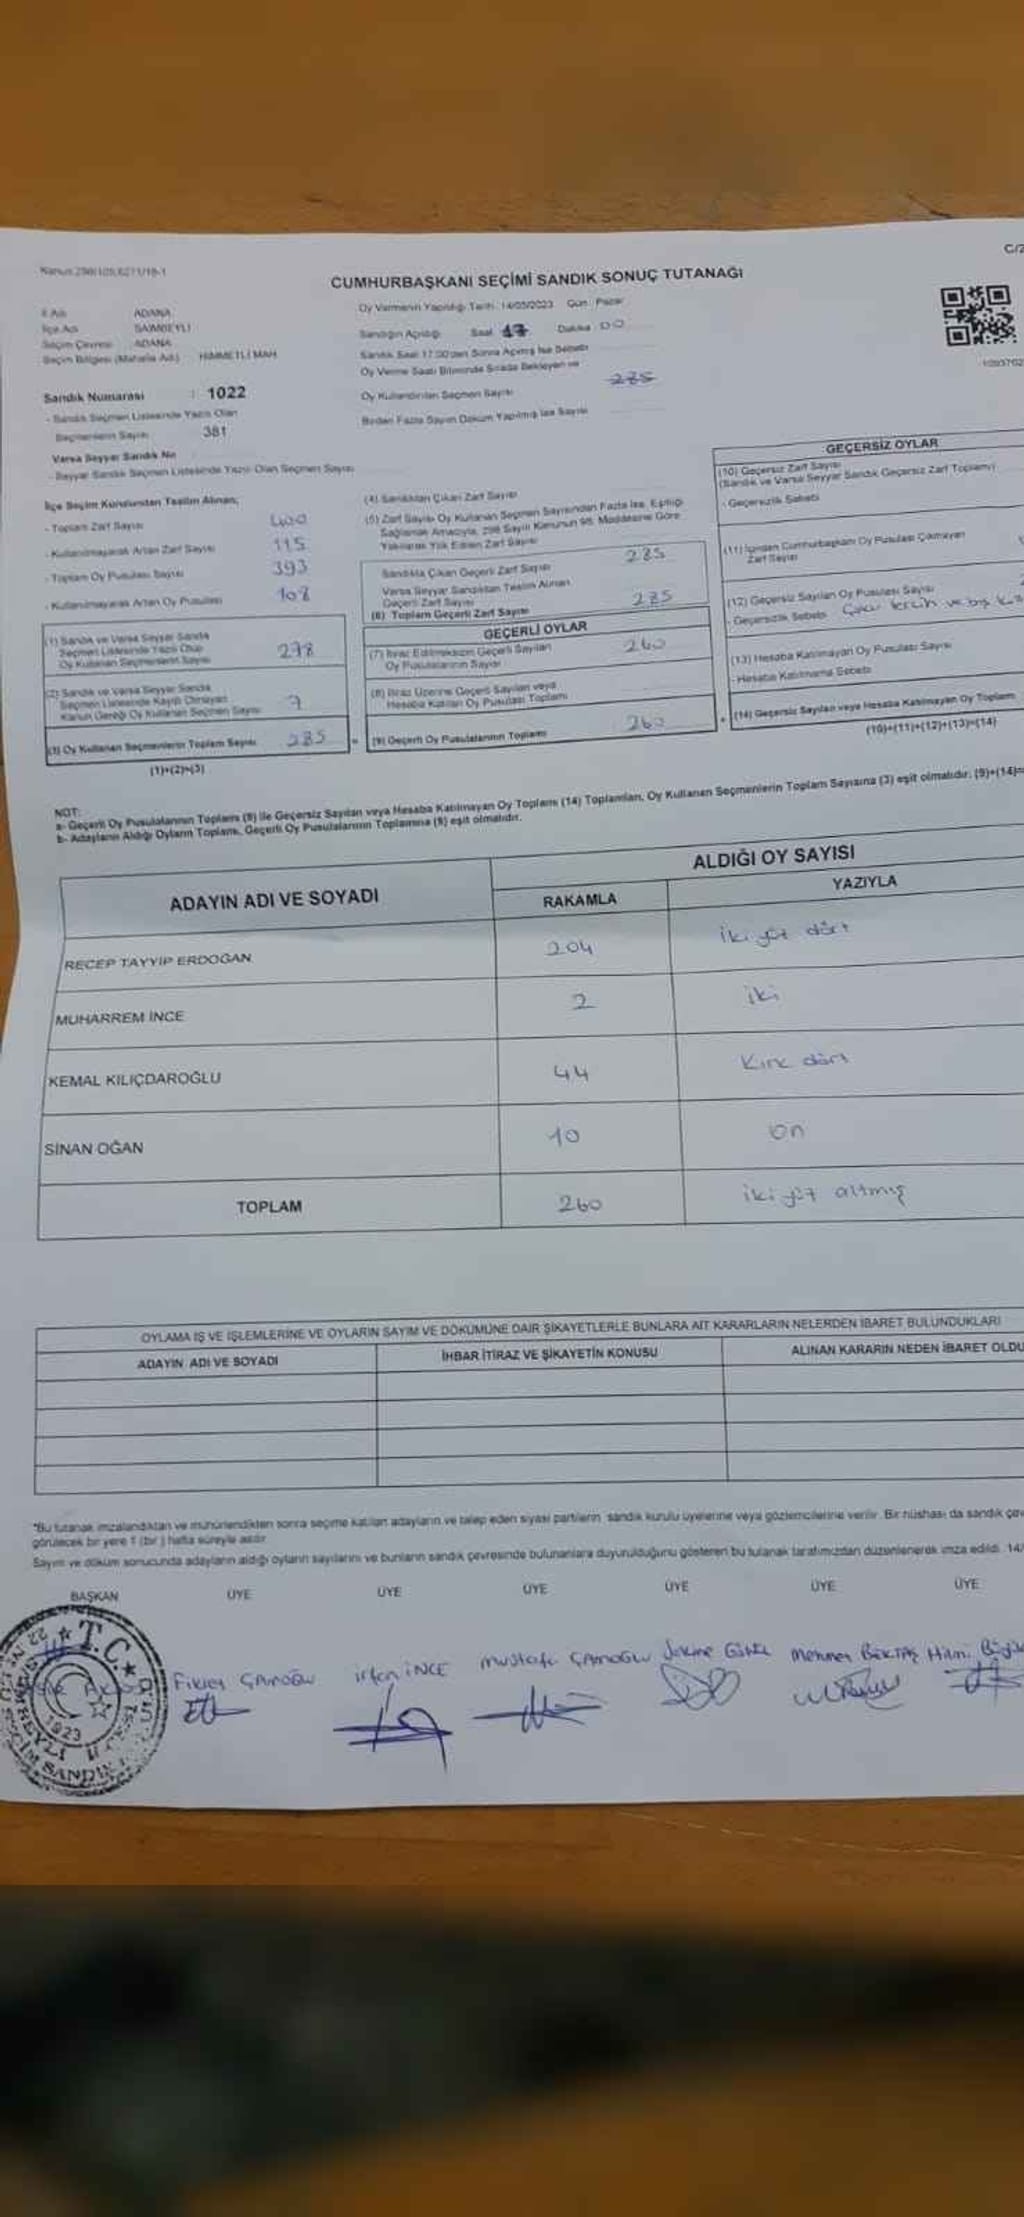 Kanun 298/105,6271/19-1
C/2
CUMHURBAŞKANI SEÇİMİ SANDIK SONUÇ TUTANAĞI
İl Adı ADANA
İlçe Adı SAİMBEYLİ
Seçim Çevresi ADANA
Seçim Bölgesi (Mahalle Adı) HİMMETLİ MAH
Sandık Numarası : 1022
- Sandık Seçmen Listesinde Yazılı Olan
Seçmenlerin Sayısı 381
Varsa Seyyar Sandık No
- Seyyar Sandık Seçmen Listesinde Yazılı Olan Seçmen Sayısı
Oy Vermenin Yapıldığı Tarih : 14/05/2023 Gün : Pazar
Sandığın Açıldığı Saat 17 Dakika 00
Sandık Saat 17:00'den Sonra Açılmış İse Sebebi
Oy Verme Saati Bitiminde Sırada Bekleyen ve
Oy Kullandırılan Seçmen Sayısı
285
Birden Fazla Sayım Döküm Yapılmış İse Sayısı
İlçe Seçim Kurulundan Teslim Alınan;
- Toplam Zarf Sayısı 400
- Kullanılmayarak Artan Zarf Sayısı 115
- Toplam Oy Pusulası Sayısı 393
- Kullanılmayarak Artan Oy Pusulası 108
(1) Sandık ve Varsa Seyyar Sandık
Seçmen Listesinde Yazılı Olup
Oy Kullanan Seçmenlerin Sayısı 278
(2) Sandık ve Varsa Seyyar Sandık
Seçmen Listesinde Kayıtlı Olmayan
Kanun Gereği Oy Kullanan Seçmen Sayısı 7
(3) Oy Kullanan Seçmenlerin Toplam Sayısı 285
(1)+(2)=(3)
(4) Sandıktan Çıkan Zarf Sayısı
(5) Zarf Sayısı Oy Kullanan Seçmen Sayısından Fazla İse, Eşitliği
Sağlamak Amacıyla, 298 Sayılı Kanunun 98. Maddesine Göre
Yakılarak Yok Edilen Zarf Sayısı
Sandıkta Çıkan Geçerli Zarf Sayısı 285
Varsa Seyyar Sandıktan Teslim Alınan
Geçerli Zarf Sayısı
(6) Toplam Geçerli Zarf Sayısı 285
GEÇERLİ OYLAR
(7) İtiraz Edilmeksizin Geçerli Sayılan
Oy Pusulalarının Sayısı 260
(8) İtiraz Üzerine Geçerli Sayılan veya
Hesaba Katılan Oy Pusulası Toplamı
(9) Geçerli Oy Pusulalarının Toplamı 260
GEÇERSİZ OYLAR
(10) Geçersiz Zarf Sayısı
(Sandık ve Varsa Seyyar Sandık Geçersiz Zarf Toplamı)
- Geçersizlik Sebebi
(11) İçinden Cumhurbaşkanı Oy Pusulası Çıkmayan
Zarf Sayısı
(12) Geçersiz Sayılan Oy Pusulası Sayısı
- Geçersizlik Sebebi tercih ve
(13) Hesaba Katılmayan Oy Pusulası Sayısı
- Hesaba Katılmama Sebebi
(14) Geçersiz Sayılan veya Hesaba Katılmayan Oy Toplamı
(10)+(11)+(12)+(13)=(14)
NOT:
a- Geçerli Oy Pusulalarının Toplamı (9) ile Geçersiz Sayılan veya Hesaba Katılmayan Oy Toplamı (14) Toplamları, Oy Kullanan Seçmenlerin Toplam Sayısına (3) eşit olmalıdır. (9)+(14)=
b- Adayların Aldığı Oyların Toplamı, Geçerli Oy Pusulalarının Toplamına (9) eşit olmalıdır.
ADAYIN ADI VE SOYADI
ALDIĞI OY SAYISI
RAKAMLA YAZIYLA
RECEP TAYYİP ERDOĞAN 204 iki yüz dört
MUHARREM İNCE 2 iki
KEMAL KILIÇDAROĞLU 44 Kırk dört
SİNAN OĞAN 10 on
TOPLAM 260 iki yüz altmış
OYLAMA İŞ VE İŞLEMLERİNE VE OYLARIN SAYIM VE DÖKÜMÜNE DAİR ŞİKAYETLERLE BUNLARA AİT KARARLARIN NELERDEN İBARET BULUNDUKLARI
ADAYIN ADI VE SOYADI İHBAR İTİRAZ VE ŞİKAYETİN KONUSU ALINAN KARARIN NEDEN İBARET OLDU
*Bu tutanak imzalandıktan ve mühürlendikten sonra seçime katılan adayların ve talep eden siyasi partilerin sandık kurulu üyelerine veya gözlemcilerine verilir. Bir nüshası da sandık çev
görülecek bir yere 1 (bir) hafta süreyle asılır.
Sayım ve döküm sonucunda adayların aldığı oyların sayılarını ve bunların sandık çevresinde bulunanlara duyurulduğunu gösteren bu tutanak tarafımızdan düzenlenerek imza edildi. 14/
BAŞKAN ÜYE ÜYE ÜYE ÜYE ÜYE ÜYE
Fikret ÇAMOĞLU irfan İNCE mustafa ÇAMOĞLU Mehmet BEKTAŞ Hilmi
T.C.
1923